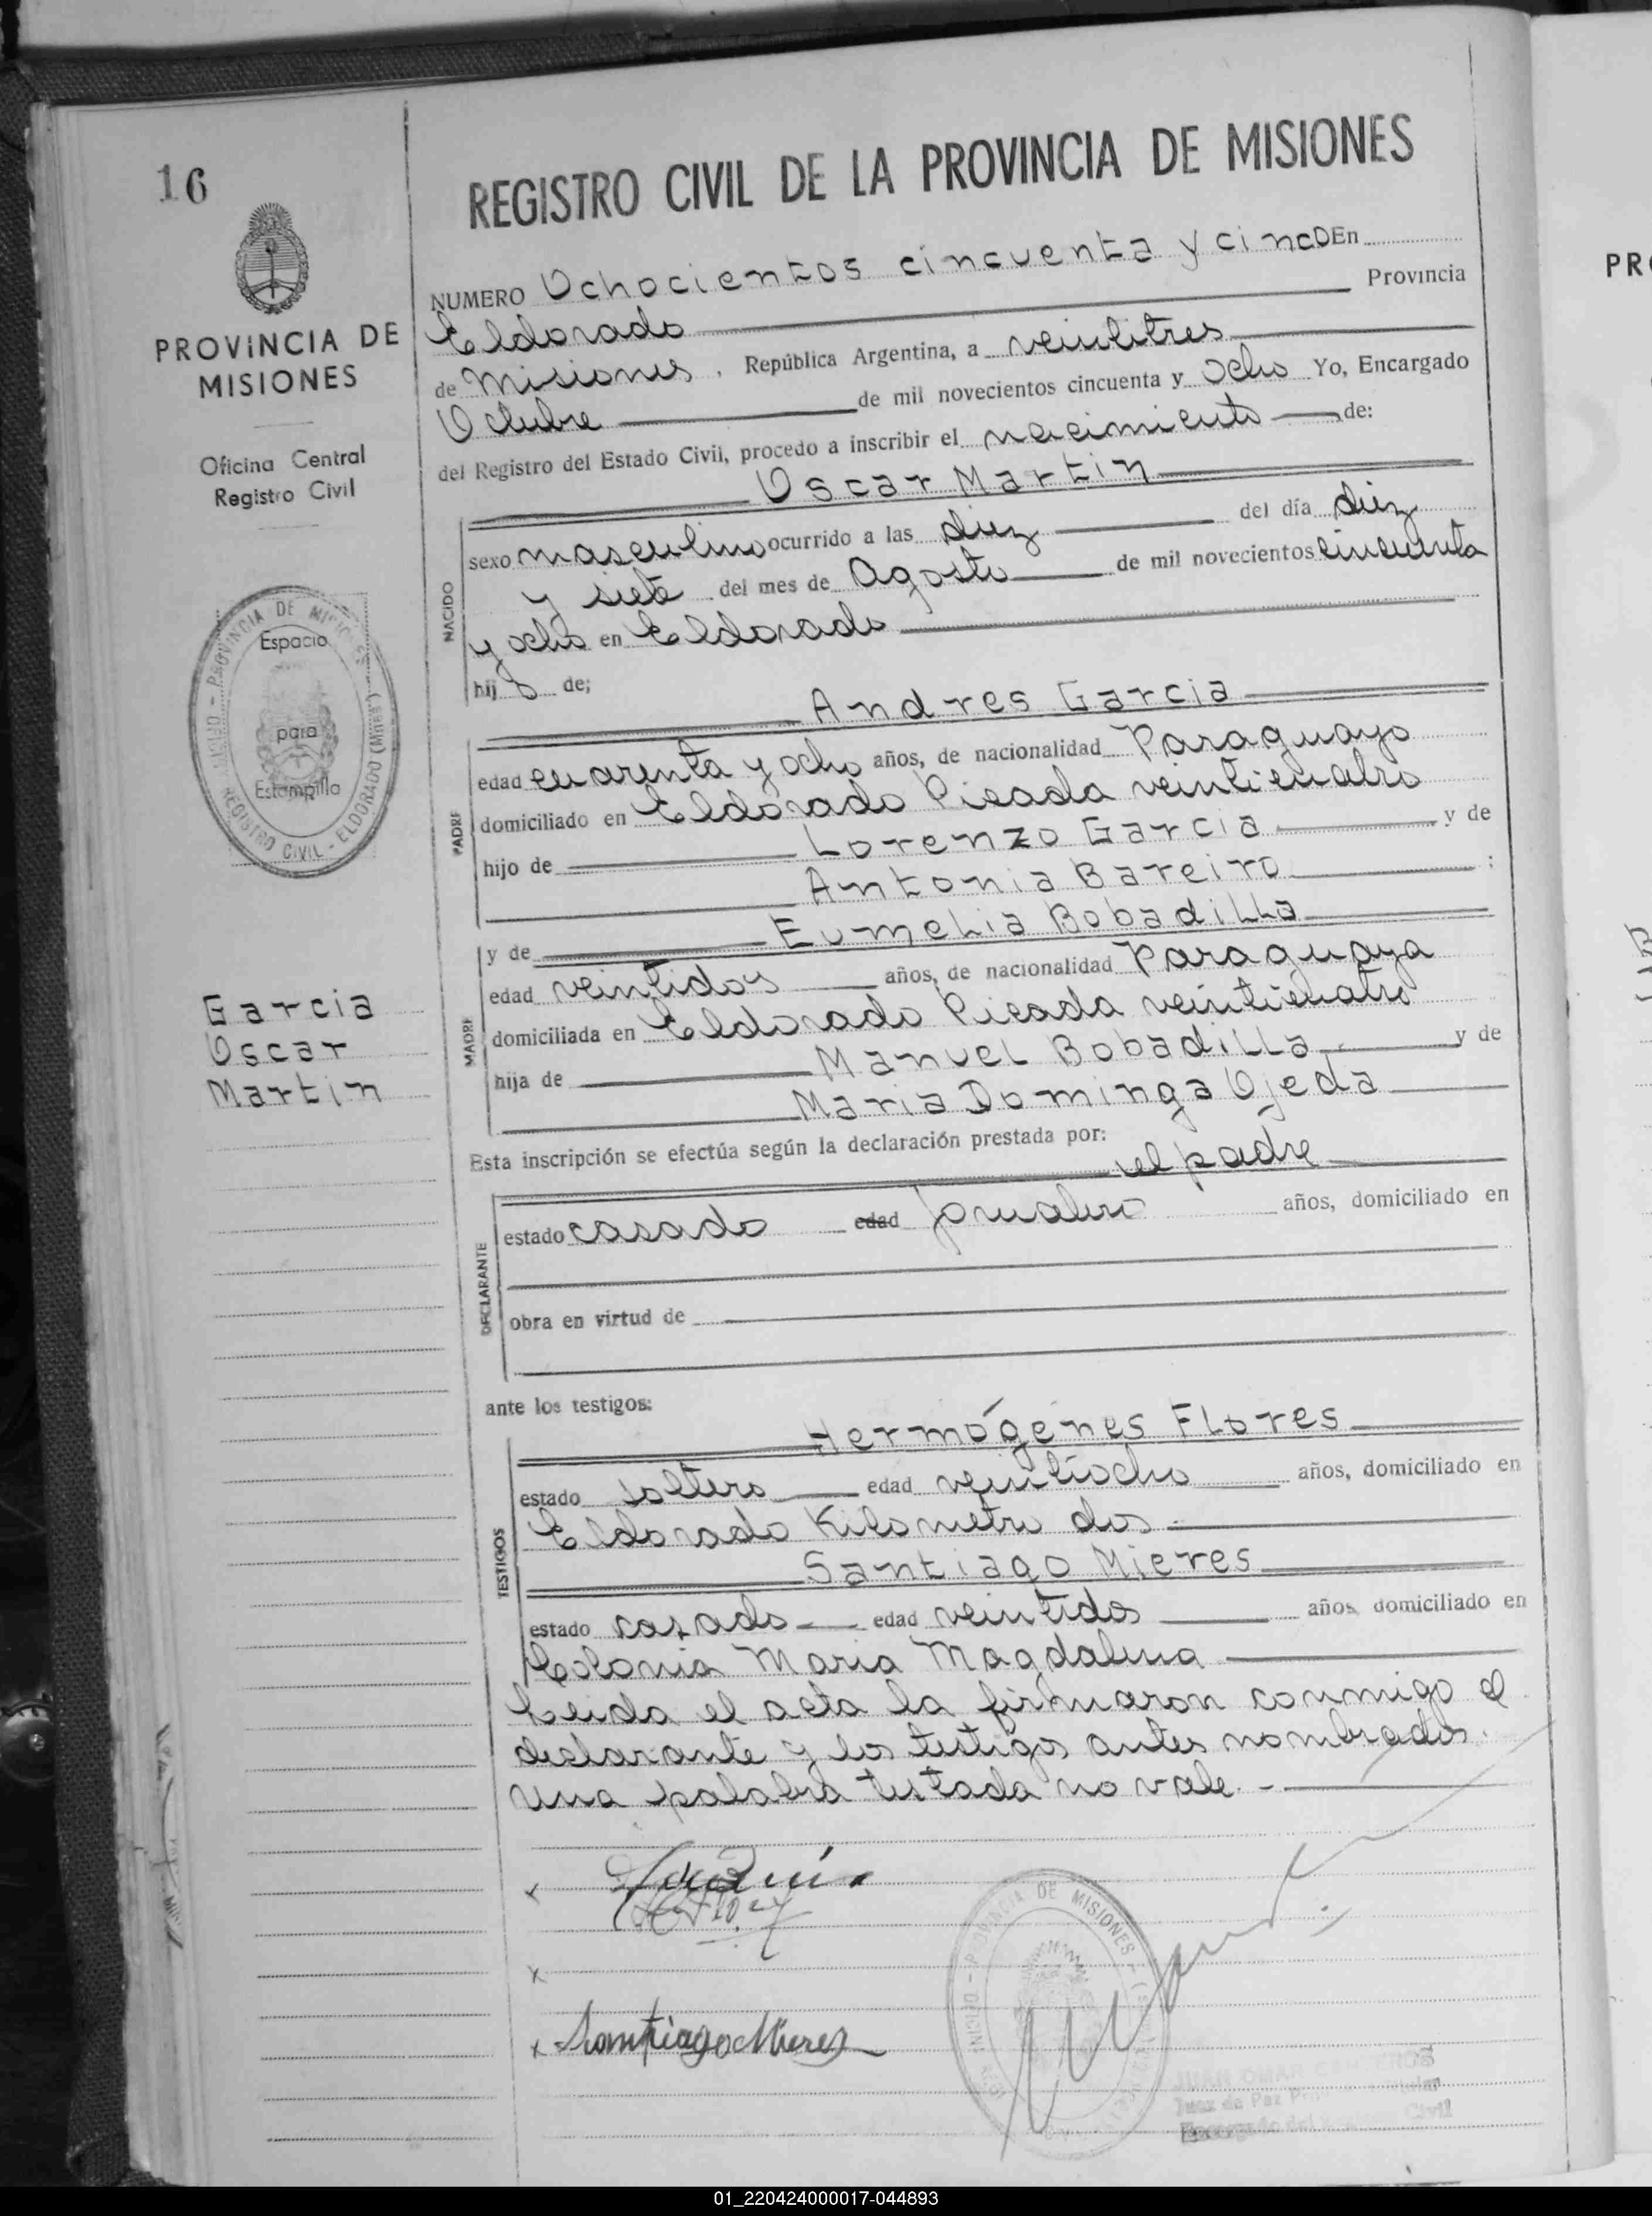 16
PROVINCIA DE
MISIONES
Oficina Central
Registro Civil
PROVINCIA DE MISIONES
REGISTRO CIVIL - ELDORADO (Mnes)
Espacio
para
Estampilla
Garcia
Oscar
Martin
REGISTRO CIVIL DE LA PROVINCIA DE MISIONES
NUMERO Ochocientos cincuenta y cinco En
Eldorado Provincia
de Misiones, República Argentina, a veintitres
Octubre de mil novecientos cincuenta y Ocho Yo, Encargado
del Registro del Estado Civil, procedo a inscribir el nacimiento de:
Oscar Martin
NACIDO
sexo masculino ocurrido a las diez del día diez
y siete del mes de Agosto de mil novecientos cincuenta
y ocho en Eldorado
hijo de;
Andres Garcia
PADRE
edad cuarenta y ocho años, de nacionalidad Paraguayo
domiciliado en Eldorado Picada veinticuatro
hijo de Lorenzo Garcia y de
Antonia Bareiro :
y de Eumelia Bobadilla
MADRE
edad veintidos años, de nacionalidad Paraguaya
domiciliada en Eldorado Picada veinticuatro
hija de Manuel Bobadilla y de
Maria Dominga Ojeda
Esta inscripción se efectúa según la declaración prestada por:
el padre
DECLARANTE
estado casado edad jornalero años, domiciliado en
obra en virtud de
ante los testigos:
Hermógenes Flores
TESTIGOS
estado soltero edad veintiocho años, domiciliado en
Eldorado Kilometro dos
Santiago Mieres
estado casado edad veintidos años, domiciliado en
Colonia Maria Magdalena
Leida el acta la firmaron conmigo el
declarante y los testigos antes nombrados.
Una palabra testada no vale. -
x
x
x Santiago Mieres
PROVINCIA DE MISIONES
JUAN OMAR
Juez de Paz
Encargado del Civil
PR
01_220424000017-044893